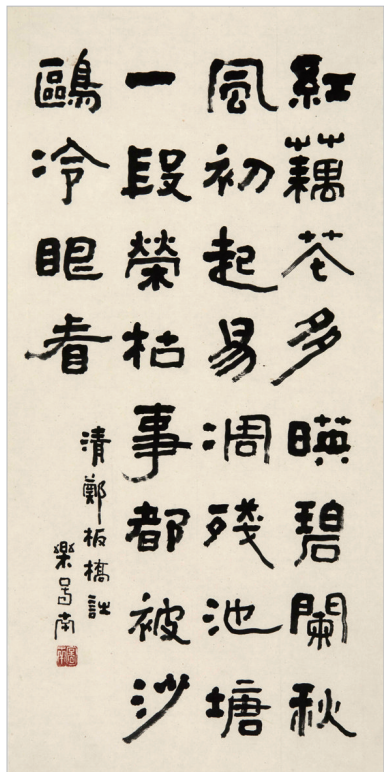 紅藕芲多暎碧闌秋
風初起易凋殘池塘
一段榮枯事都被沙
鷗冷眼看
清鄭板橋詩
樂昌南